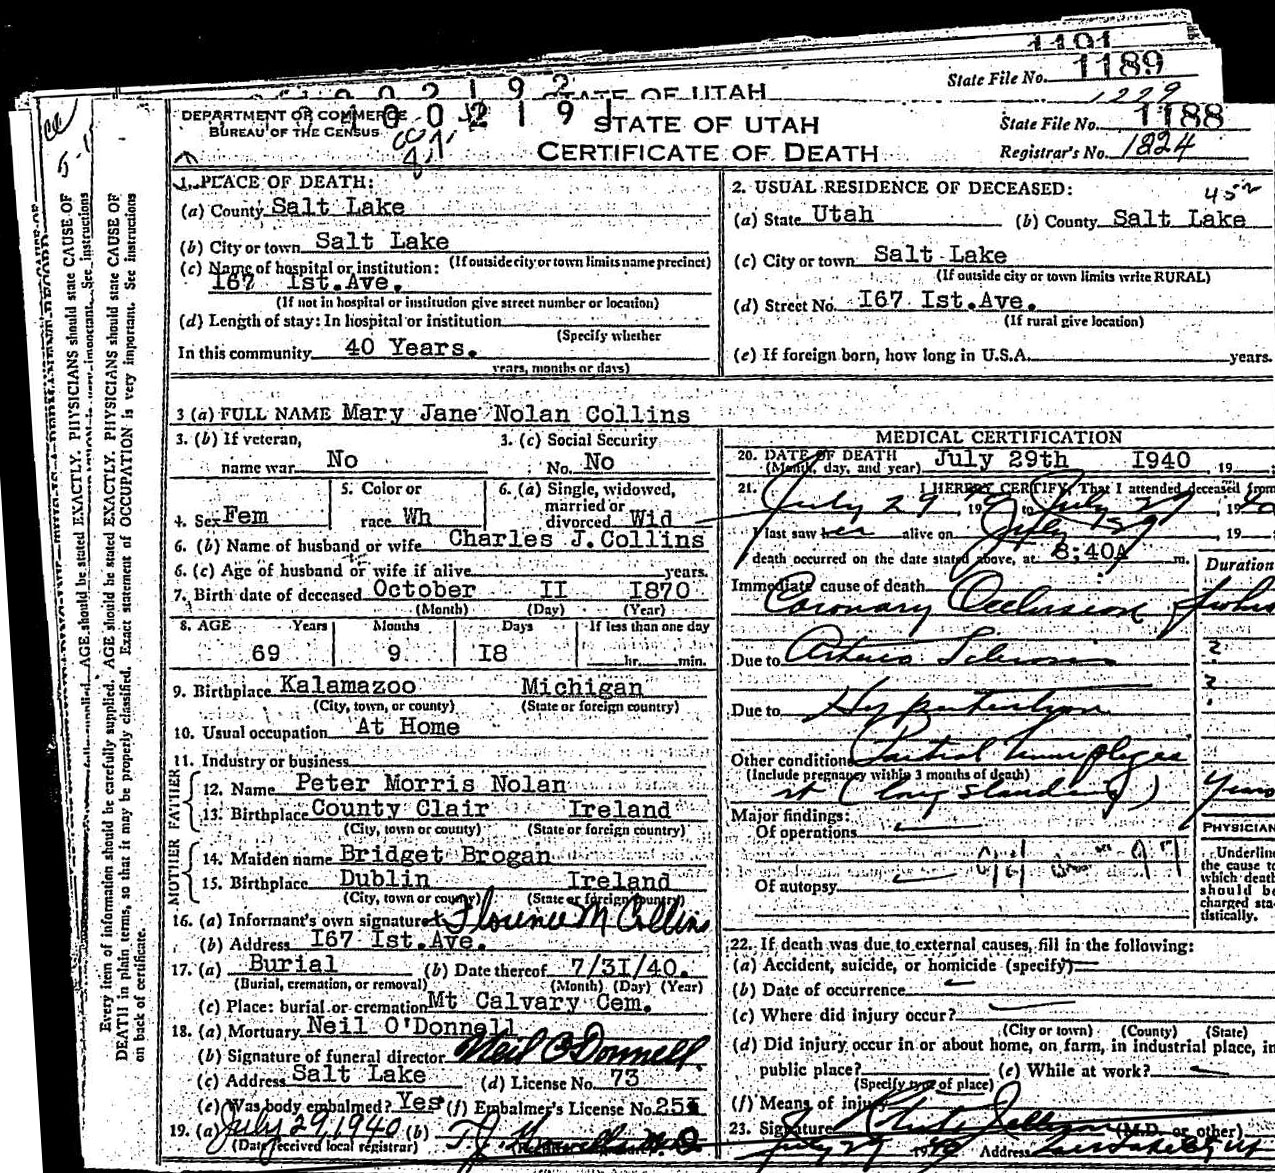 1191
State File No. 1189
1229
1002192
STATE OF UTAH
DEPARTMENT OF COMMERCE
BUREAU OF THE CENSUS
1002191
STATE OF UTAH
CERTIFICATE OF DEATH
State File No. 1188
Registrar's No. 1224
1. PLACE OF DEATH:
(a) County Salt Lake
(b) City or town Salt Lake
(If outside city or town limits name precinct)
(c) Name of hospital or institution:
I67 Ist.Ave.
(If not in hospital or institution give street number or location)
(d) Length of stay: In hospital or institution
(Specify whether
In this community 40 Years.
years, months or days)
2. USUAL RESIDENCE OF DECEASED:
452
(a) State Utah (b) County Salt Lake
(c) City or town Salt Lake
(If outside city or town limits write RURAL)
(d) Street No. I67 Ist.Ave.
(If rural give location)
(e) If foreign born, how long in U.S.A. years.
3 (a) FULL NAME Mary Jane Nolan Collins
3. (b) If veteran,
name war No
3. (c) Social Security
No. No
4. Sex Fem
5. Color or
race Wh
6. (a) Single, widowed,
married or
divorced Wid
6. (b) Name of husband or wife Charles J.Collins
6. (c) Age of husband or wife if alive years.
7. Birth date of deceased October II I870
(Month) (Day) (Year)
8. AGE Years Months Days If less than one day
69 9 I8 hr. min.
9. Birthplace Kalamazoo Michigan
(City, town, or county) (State or foreign country)
10. Usual occupation At Home
11. Industry or business
FATHER
12. Name Peter Morris Nolan
13. Birthplace County Clair Ireland
(City, town or county) (State or foreign country)
MOTHER
14. Maiden name Bridget Brogan
15. Birthplace Dublin Ireland
(City, town or county) (State or foreign country)
16. (a) Informant's own signature Florence M Collins
(b) Address I67 Ist.Ave.
17. (a) Burial (b) Date thereof 7/3I/40.
(Burial, cremation, or removal) (Month) (Day) (Year)
(c) Place: burial or cremation Mt Calvary Cem.
18. (a) Mortuary Neil O'Donnell
(b) Signature of funeral director Neil O'Donnell
(c) Address Salt Lake (d) License No. 73
(e) Was body embalmed? Yes (f) Embalmer's License No.
19. (a) July 29, 1940 (b)
(Date received local registrar)
MEDICAL CERTIFICATION
20. DATE OF DEATH
(Month, day, and year) July 29th I940, 19
21. I HEREBY CERTIFY, That I attended deceased from
July 29, 19 to July 29, 1940
I last saw her alive on July 29, 19
death occurred on the date stated above, at 8;40A m.
Duration
Immediate cause of death
Coronary Occlusion
Due to Arterio Sclerosis ?
?
Due to Hypertension
Other conditions Partial
(Include pregnancy within 3 months of death)
(long standing) years
Major findings:
Of operations
Of autopsy
PHYSICIAN
Underline
the cause to
which death
should be
charged sta-
tistically.
22. If death was due to external causes, fill in the following:
(a) Accident, suicide, or homicide (specify)
(b) Date of occurrence
(c) Where did injury occur?
(City or town) (County) (State)
(d) Did injury occur in or about home, on farm, in industrial place, in
public place? (e) While at work?
(Specify type of place)
(f) Means of injury
23. Signature (M.D. or other)
July 29 1940 Address
Every item of information should be carefully supplied. AGE should be stated EXACTLY. PHYSICIANS should state CAUSE OF
DEATH in plain terms, so that it may be properly classified. Exact statement of OCCUPATION is very important. See instructions
on back of certificate.